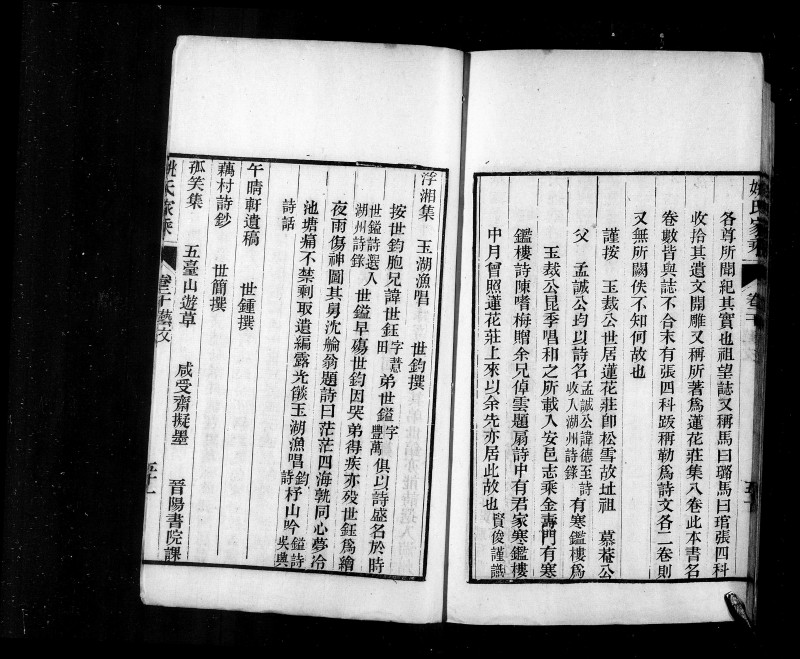 各尊所聞紀其實也祖望誌又稱馬曰璐馬曰琯張四科
收拾其遺文開雕又稱所著爲蓮花莊集八卷此本書名
卷數皆與誌不合末有張四科跋稱勒爲詩文各二卷則
又無所闕佚不知何故也
謹按　玉裁公世居蓮花莊卽松雪故址祖　慕菴公
父　孟誠公均以詩名孟誠公諱德至詩收入湖州詩錄有寒鑑樓爲
玉裁公昆季唱和之所載入安邑志乘金壽門有寒
鑑樓詩陳嗜梅贈余兄倬雲題扇詩中有君家寒鑑樓
中月曾照蓮花莊上來以余先亦居此故也賢俊謹識
浮湘集　玉湖漁唱　世鈞撰
按世鈞胞兄諱世鈺字薏田弟世鎰字豐萬俱以詩盛名於時
世鎰詩選入湖州詩錄世鎰早殤世鈞因哭弟得疾亦歿世鈺爲繪
夜雨傷神圖其舅沈艑翁題詩曰茫茫四海孰同心夢冷
池塘痛不禁剩取遺編露光燄玉湖漁唱鈞詩杼山吟鎰詩吳興
詩話
午晴軒遺稿　世鍾撰
藕村詩鈔　世簡撰
孤笑集　五臺山遊草　咸受齋擬墨　晉陽書院課
姚氏家乘　卷二十藝文　五十一